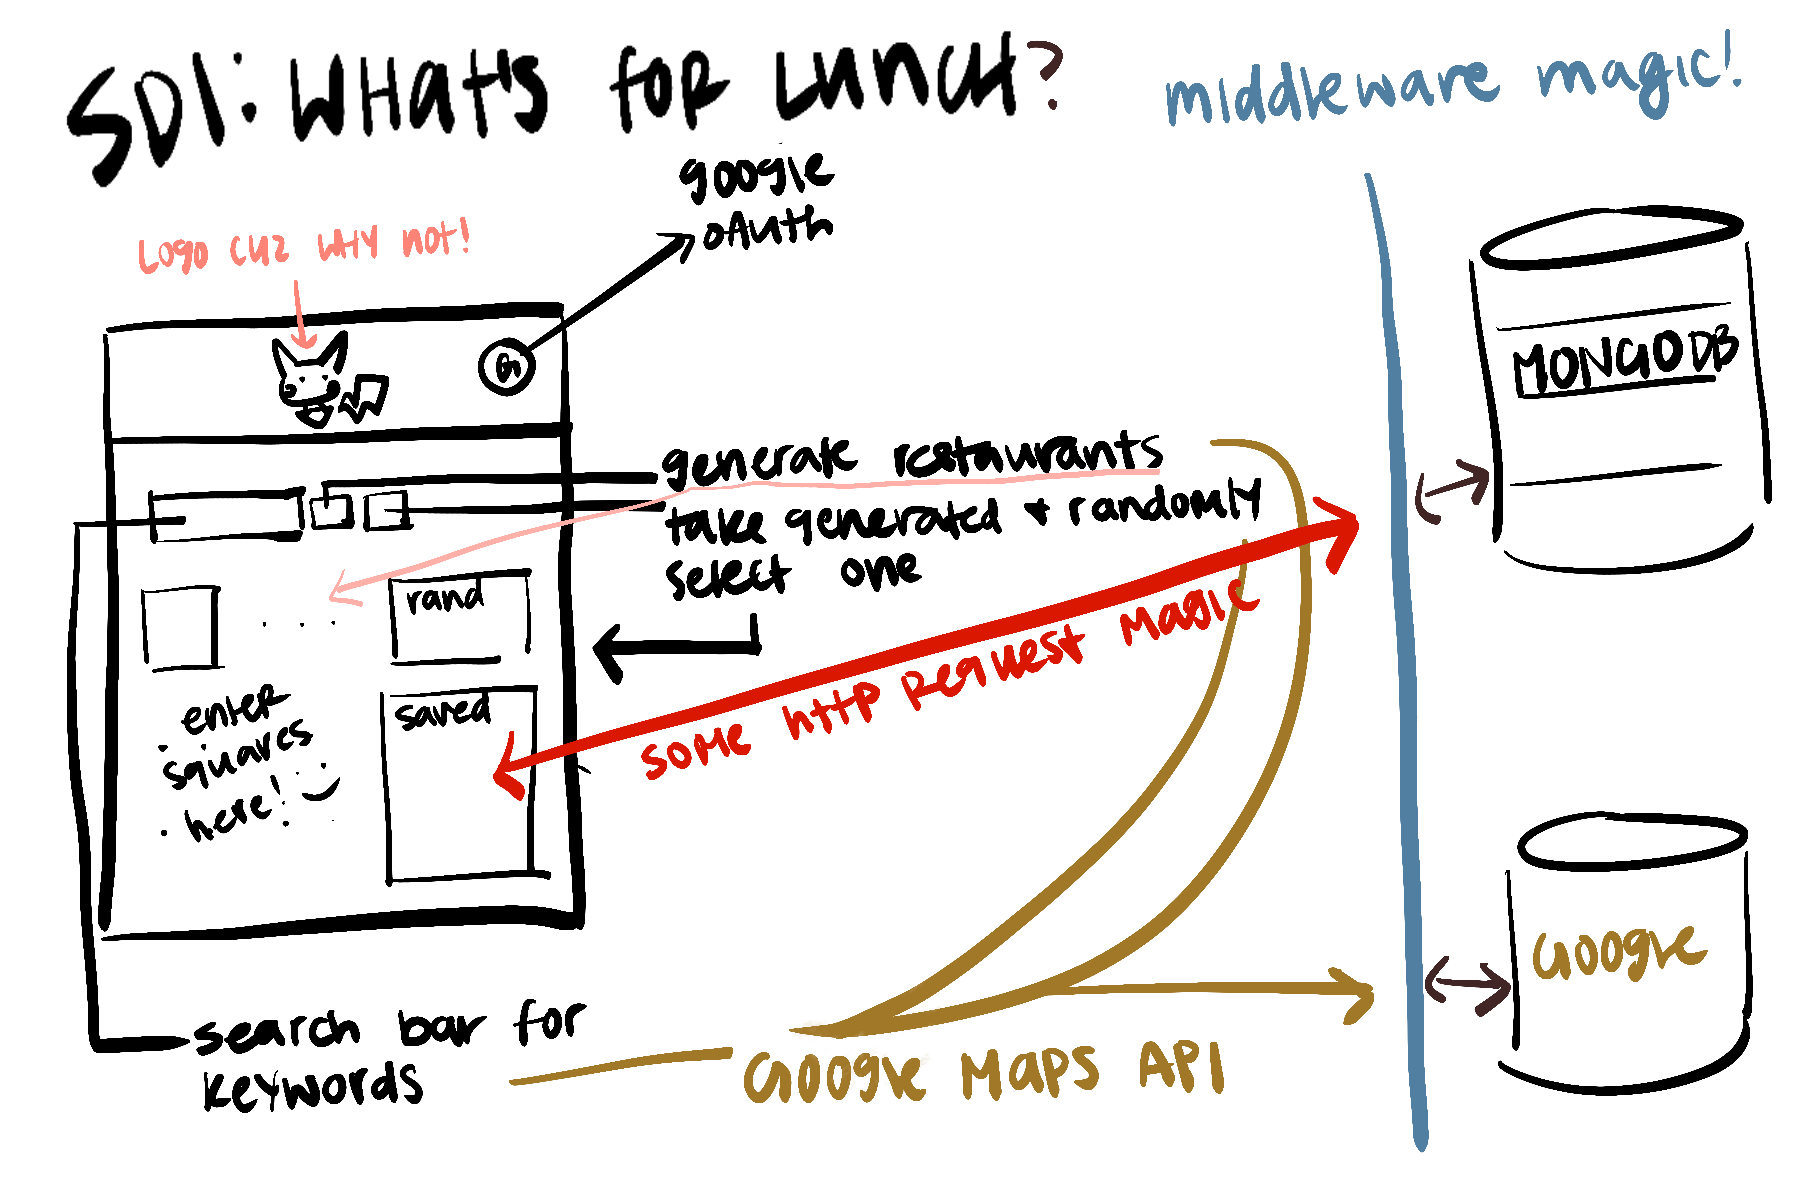 SDI: WHAT'S FOR LUNCH?
middleware magic!
google
oAuth
Logo cuz why not!
G
generate restaurants
take generated & randomly
select one
rand
saved
enter
squares
here!
some http request magic
MONGODB
Google
search bar for
keywords
Google Maps API